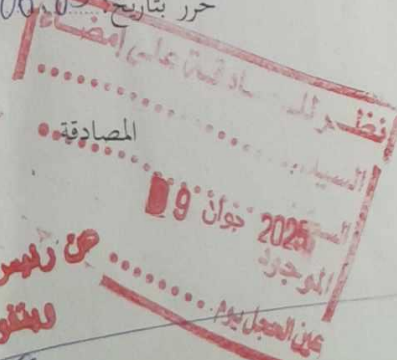 حرر بتاريخ:
نظر للمصادقة على إمضاء
السيد:
المصادقة
09 جوان 2025
الموجود
عين الحجل يوم
عن رئيس
وبتفو